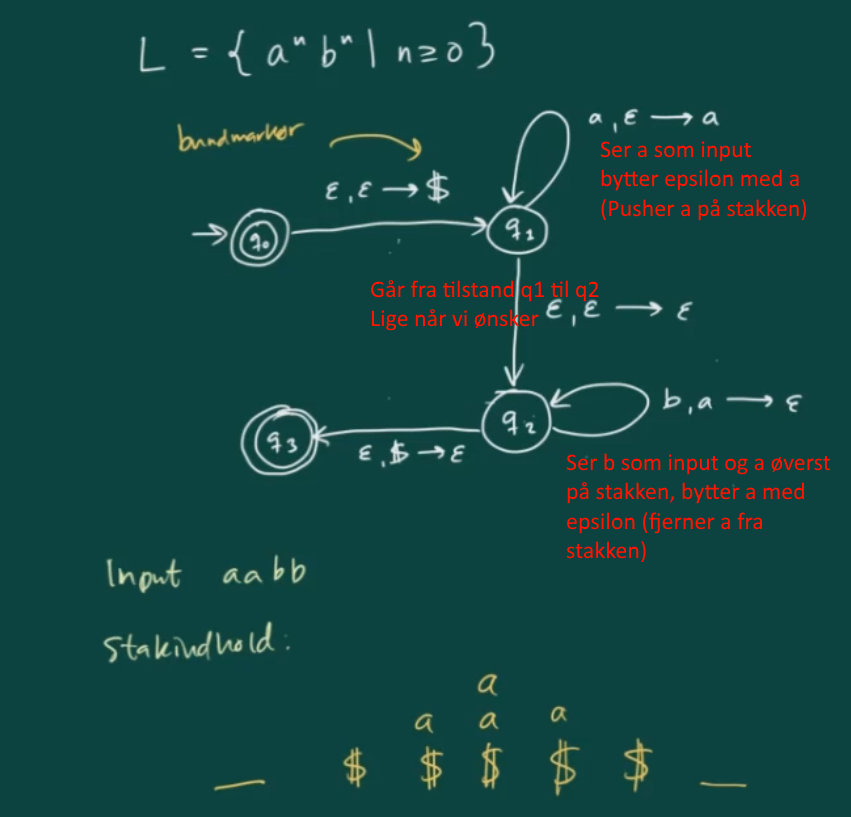 L = { aⁿ bⁿ | n ≥ 0 }
bundmarkør
ε, ε → $
a, ε → a
Ser a som input
bytter epsilon med a
(Pusher a på stakken)
q₀
q₁
Går fra tilstand q1 til q2
Lige når vi ønsker
ε, ε → ε
q₃
ε, $ → ε
q₂
b, a → ε
Ser b som input og a øverst
på stakken, bytter a med
epsilon (fjerner a fra
stakken)
Input aabb
Stakindhold:
a
a a a
_ $ $ $ $ $ _